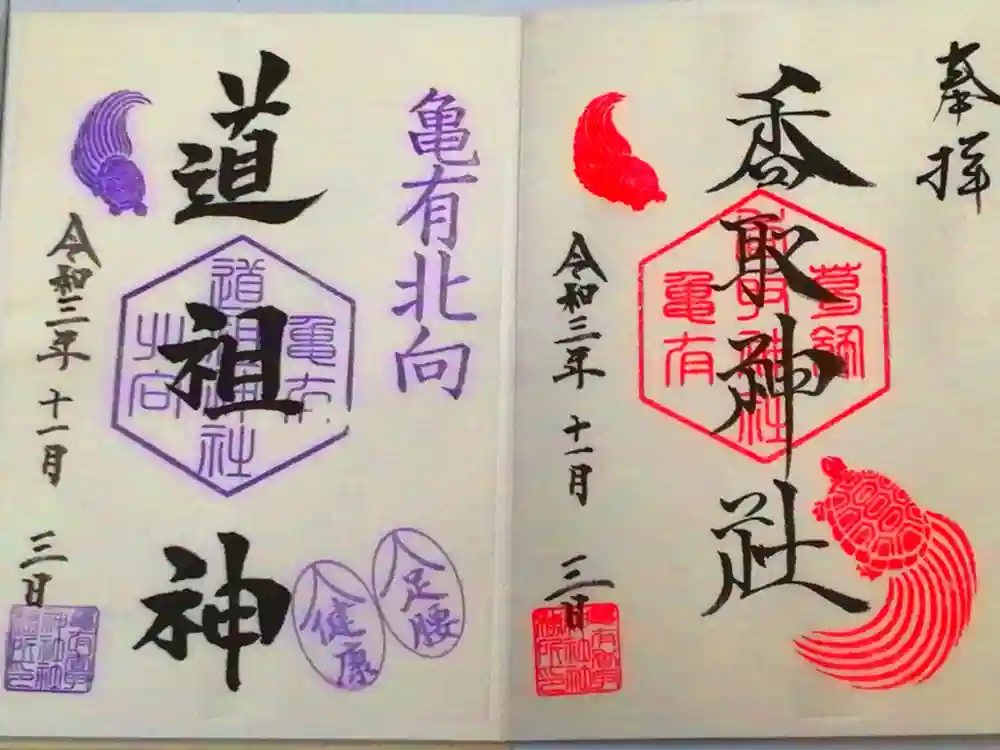 奉拝
香取神社
葛飾
亀有
令和三年 十一月 三日
亀有北向
道祖神
亀有
道祖神社
北向
足腰
健康
令和三年 十一月 三日